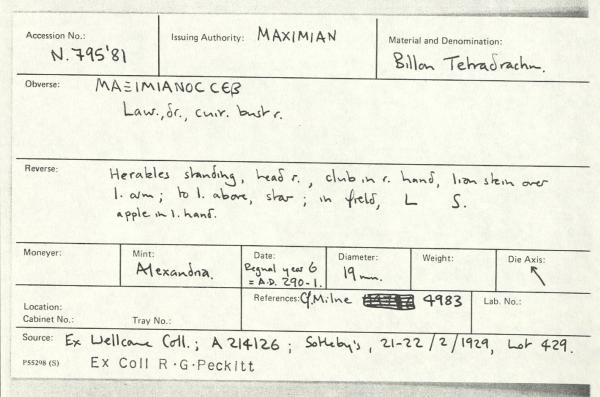 Accession No.: N.795'81
Issuing Authority: MAXIMIAN
Material and Denomination: Billon Tetradrachm.
Obverse: ΜΑΞΙΜΙΑΝΟC CEB
Law., dr., cuir. bust r.
Reverse: Herakles standing, head r., club in r. hand, lion skin over
l. arm; to l. above, star; in field, L S.
apple in l. hand.
Moneyer:
Mint: Alexandria.
Date: Regnal year 6
= A.D. 290-1.
Diameter: 19 mm.
Weight:
Die Axis: ↖
Location:
Cabinet No.: Tray No.:
References: Cf. Milne 4983
Lab. No.:
Source: Ex Wellcome Coll.; A 214126; Sotheby's, 21-22/2/1929, Lot 429.
PS5298 (S) Ex Coll R·G·Peckitt